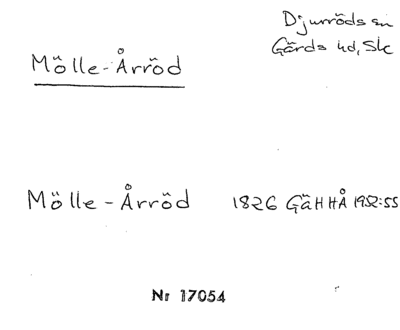 Djurröds sn
Gärds hd, Sk
Mölle-Årröd
Mölle-Årröd 1826 GäHHÅ 1952:55
Nr 17054